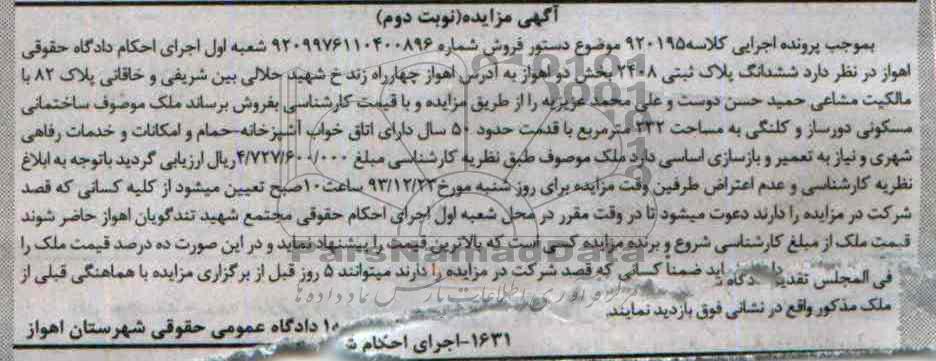 آگهی مزایده(نوبت دوم)
بموجب پرونده اجرایی کلاسه۹۲۰۱۹۵ موضوع دستور فروش شماره ۹۲۰۹۹۷۶۱۱۰۴۰۰۸۹۶ شعبه اول اجرای احکام دادگاه حقوقی
اهواز در نظر دارد ششدانگ پلاک ثبتی ۲۴۰۸ بخش دو اهواز به آدرس اهواز چهارراه زند خ شهید جلالی بین شریفی و خاقانی پلاک ۸۲ با
مالکیت مشاعی حمید حسن دوست و علی محمد عزیزیه را از طریق مزایده و با قیمت کارشناسی بفروش برساند ملک موصوف ساختمانی
مسکونی دورساز و کلنگی به مساحت ۲۳۲ مترمربع با قدمت حدود ۵۰ سال دارای اتاق خواب آشپزخانه-حمام و امکانات و خدمات رفاهی
شهری و نیاز به تعمیر و بازسازی اساسی دارد ملک موصوف طبق نظریه کارشناسی مبلغ ۴/۷۲۷/۶۰۰/۰۰۰ریال ارزیابی گردید باتوجه به ابلاغ
نظریه کارشناسی و عدم اعتراض طرفین وقت مزایده برای روز شنبه مورخ۹۳/۱۲/۲۳ ساعت۱۰صبح تعیین میشود از کلیه کسانی که قصد
شرکت در مزایده را دارند دعوت میشود تا در وقت مقرر در محل شعبه اول اجرای احکام حقوقی مجتمع شهید تندگویان اهواز حاضر شوند
قیمت ملک از مبلغ کارشناسی شروع و برنده مزایده کسی است که بالاترین قیمت را پیشنهاد نماید و در این صورت ده درصد قیمت ملک را
فی المجلس تقدیم دادگاه ضمناً کسانی که قصد شرکت در مزایده را دارند میتوانند ۵ روز قبل از برگزاری مزایده با هماهنگی قبلی از
ملک مذکور واقع در نشانی فوق بازدید نمایند.
۱۶۳۱-اجرای احکام دادگاه عمومی حقوقی شهرستان اهواز
ParsNamadData